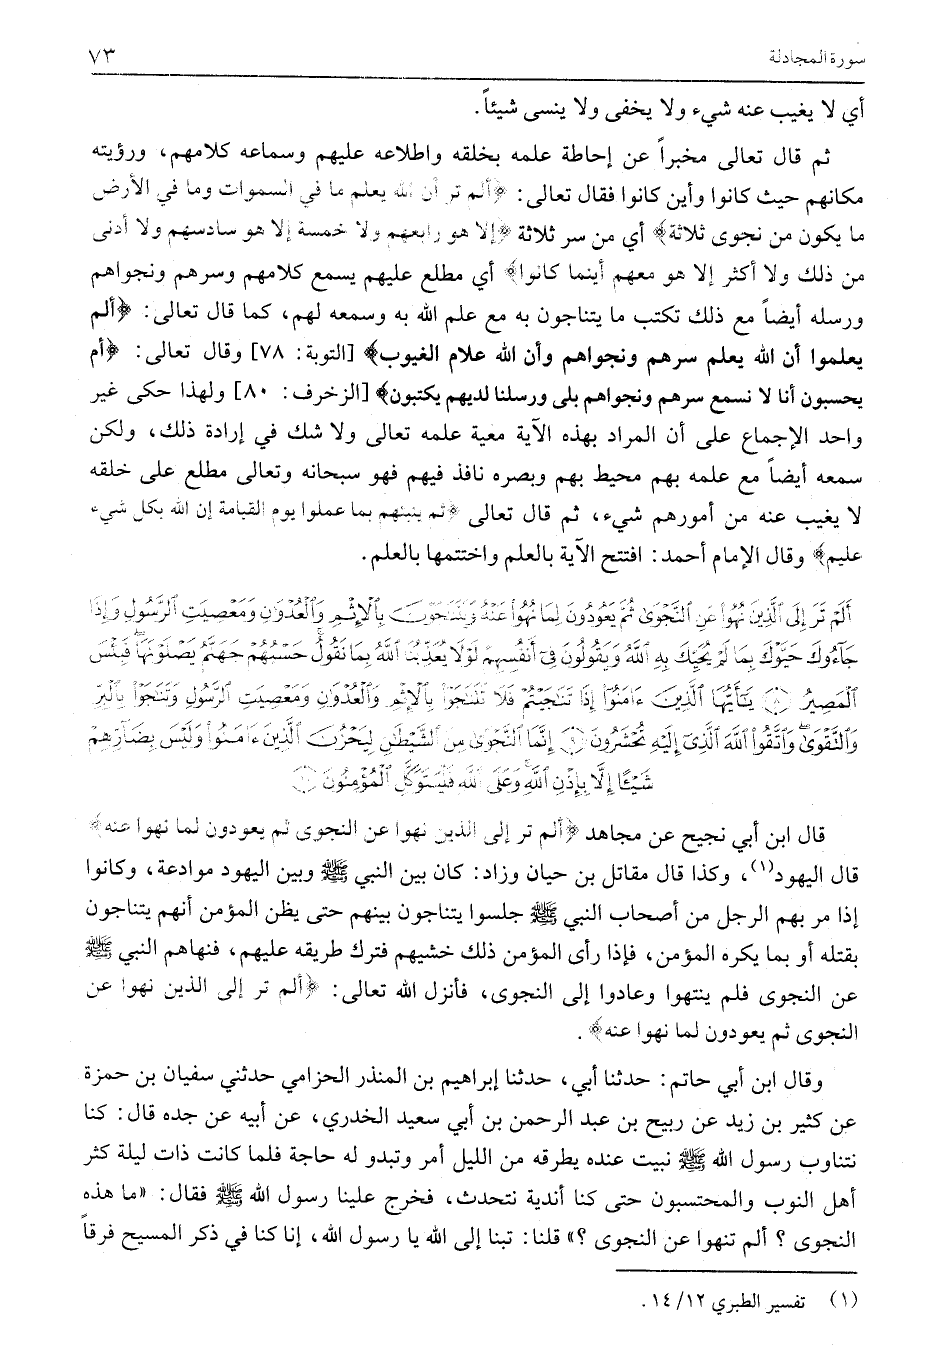 سورة المجادلة ٧٣
أي لا يغيب عنه شيء ولا يخفى ولا ينسى شيئاً.
ثم قال تعالى مخبراً عن إحاطة علمه بخلقه واطلاعه عليهم وسماعه كلامهم، ورؤيته
مكانهم حيث كانوا وأين كانوا فقال تعالى: ﴿ألم تر أن الله يعلم ما في السموات وما في الأرض
ما يكون من نجوى ثلاثة﴾ أي من سر ثلاثة ﴿إلا هو رابعهم ولا خمسة إلا هو سادسهم ولا أدنى
من ذلك ولا أكثر إلا هو معهم أينما كانوا﴾ أي مطلع عليهم يسمع كلامهم وسرهم ونجواهم
ورسله أيضاً مع ذلك تكتب ما يتناجون به مع علم الله به وسمعه لهم، كما قال تعالى: ﴿ألم
يعلموا أن الله يعلم سرهم ونجواهم وأن الله علام الغيوب﴾ [التوبة: ٧٨] وقال تعالى: ﴿أم
يحسبون أنا لا نسمع سرهم ونجواهم بلى ورسلنا لديهم يكتبون﴾ [الزخرف: ٨٠] ولهذا حكى غير
واحد الإجماع على أن المراد بهذه الآية معية علمه تعالى ولا شك في إرادة ذلك، ولكن
سمعه أيضاً مع علمه بهم محيط بهم وبصره نافذ فيهم فهو سبحانه وتعالى مطلع على خلقه
لا يغيب عنه من أمورهم شيء، ثم قال تعالى ﴿ثم ينبئهم بما عملوا يوم القيامة إن الله بكل شيء
عليم﴾ وقال الإمام أحمد: افتتح الآية بالعلم واختتمها بالعلم.
أَلَمْ تَرَ إِلَى ٱلَّذِينَ نُهُوا۟ عَنِ ٱلنَّجْوَىٰ ثُمَّ يَعُودُونَ لِمَا نُهُوا۟ عَنْهُ وَيَتَنَـٰجَوْنَ بِٱلْإِثْمِ وَٱلْعُدْوَٰنِ وَمَعْصِيَتِ ٱلرَّسُولِ وَإِذَا
جَآءُوكَ حَيَّوْكَ بِمَا لَمْ يُحَيِّكَ بِهِ ٱللَّهُ وَيَقُولُونَ فِىٓ أَنفُسِهِمْ لَوْلَا يُعَذِّبُنَا ٱللَّهُ بِمَا نَقُولُ حَسْبُهُمْ جَهَنَّمُ يَصْلَوْنَهَا فَبِئْسَ
ٱلْمَصِيرُ ﴿٨﴾ يَـٰٓأَيُّهَا ٱلَّذِينَ ءَامَنُوٓا۟ إِذَا تَنَـٰجَيْتُمْ فَلَا تَتَنَـٰجَوْا۟ بِٱلْإِثْمِ وَٱلْعُدْوَٰنِ وَمَعْصِيَتِ ٱلرَّسُولِ وَتَنَـٰجَوْا۟ بِٱلْبِرِّ
وَٱلتَّقْوَىٰ وَٱتَّقُوا۟ ٱللَّهَ ٱلَّذِىٓ إِلَيْهِ تُحْشَرُونَ ﴿٩﴾ إِنَّمَا ٱلنَّجْوَىٰ مِنَ ٱلشَّيْطَـٰنِ لِيَحْزُنَ ٱلَّذِينَ ءَامَنُوا۟ وَلَيْسَ بِضَآرِّهِمْ
شَيْـًٔا إِلَّا بِإِذْنِ ٱللَّهِ وَعَلَى ٱللَّهِ فَلْيَتَوَكَّلِ ٱلْمُؤْمِنُونَ ﴿١٠﴾
قال ابن أبي نجيح عن مجاهد ﴿ألم تر إلى الذين نهوا عن النجوى ثم يعودون لما نهوا عنه﴾
قال اليهود(١)، وكذا قال مقاتل بن حيان وزاد: كان بين النبي ﷺ وبين اليهود موادعة، وكانوا
إذا مر بهم الرجل من أصحاب النبي ﷺ جلسوا يتناجون بينهم حتى يظن المؤمن أنهم يتناجون
بقتله أو بما يكره المؤمن، فإذا رأى المؤمن ذلك خشيهم فترك طريقه عليهم، فنهاهم النبي ﷺ
عن النجوى فلم ينتهوا وعادوا إلى النجوى، فأنزل الله تعالى: ﴿ألم تر إلى الذين نهوا عن
النجوى ثم يعودون لما نهوا عنه﴾.
وقال ابن أبي حاتم: حدثنا أبي، حدثنا إبراهيم بن المنذر الحزامي حدثني سفيان بن حمزة
عن كثير بن زيد عن ربيح بن عبد الرحمن بن أبي سعيد الخدري، عن أبيه عن جده قال: كنا
نتناوب رسول الله ﷺ نبيت عنده يطرقه من الليل أمر وتبدو له حاجة فلما كانت ذات ليلة كثر
أهل النوب والمحتسبون حتى كنا أندية نتحدث، فخرج علينا رسول الله ﷺ فقال: «ما هذه
النجوى ؟ ألم تنهوا عن النجوى ؟» قلنا: تبنا إلى الله يا رسول الله، إنا كنا في ذكر المسيح فرقاً
(١) تفسير الطبري ١٤/١٢.